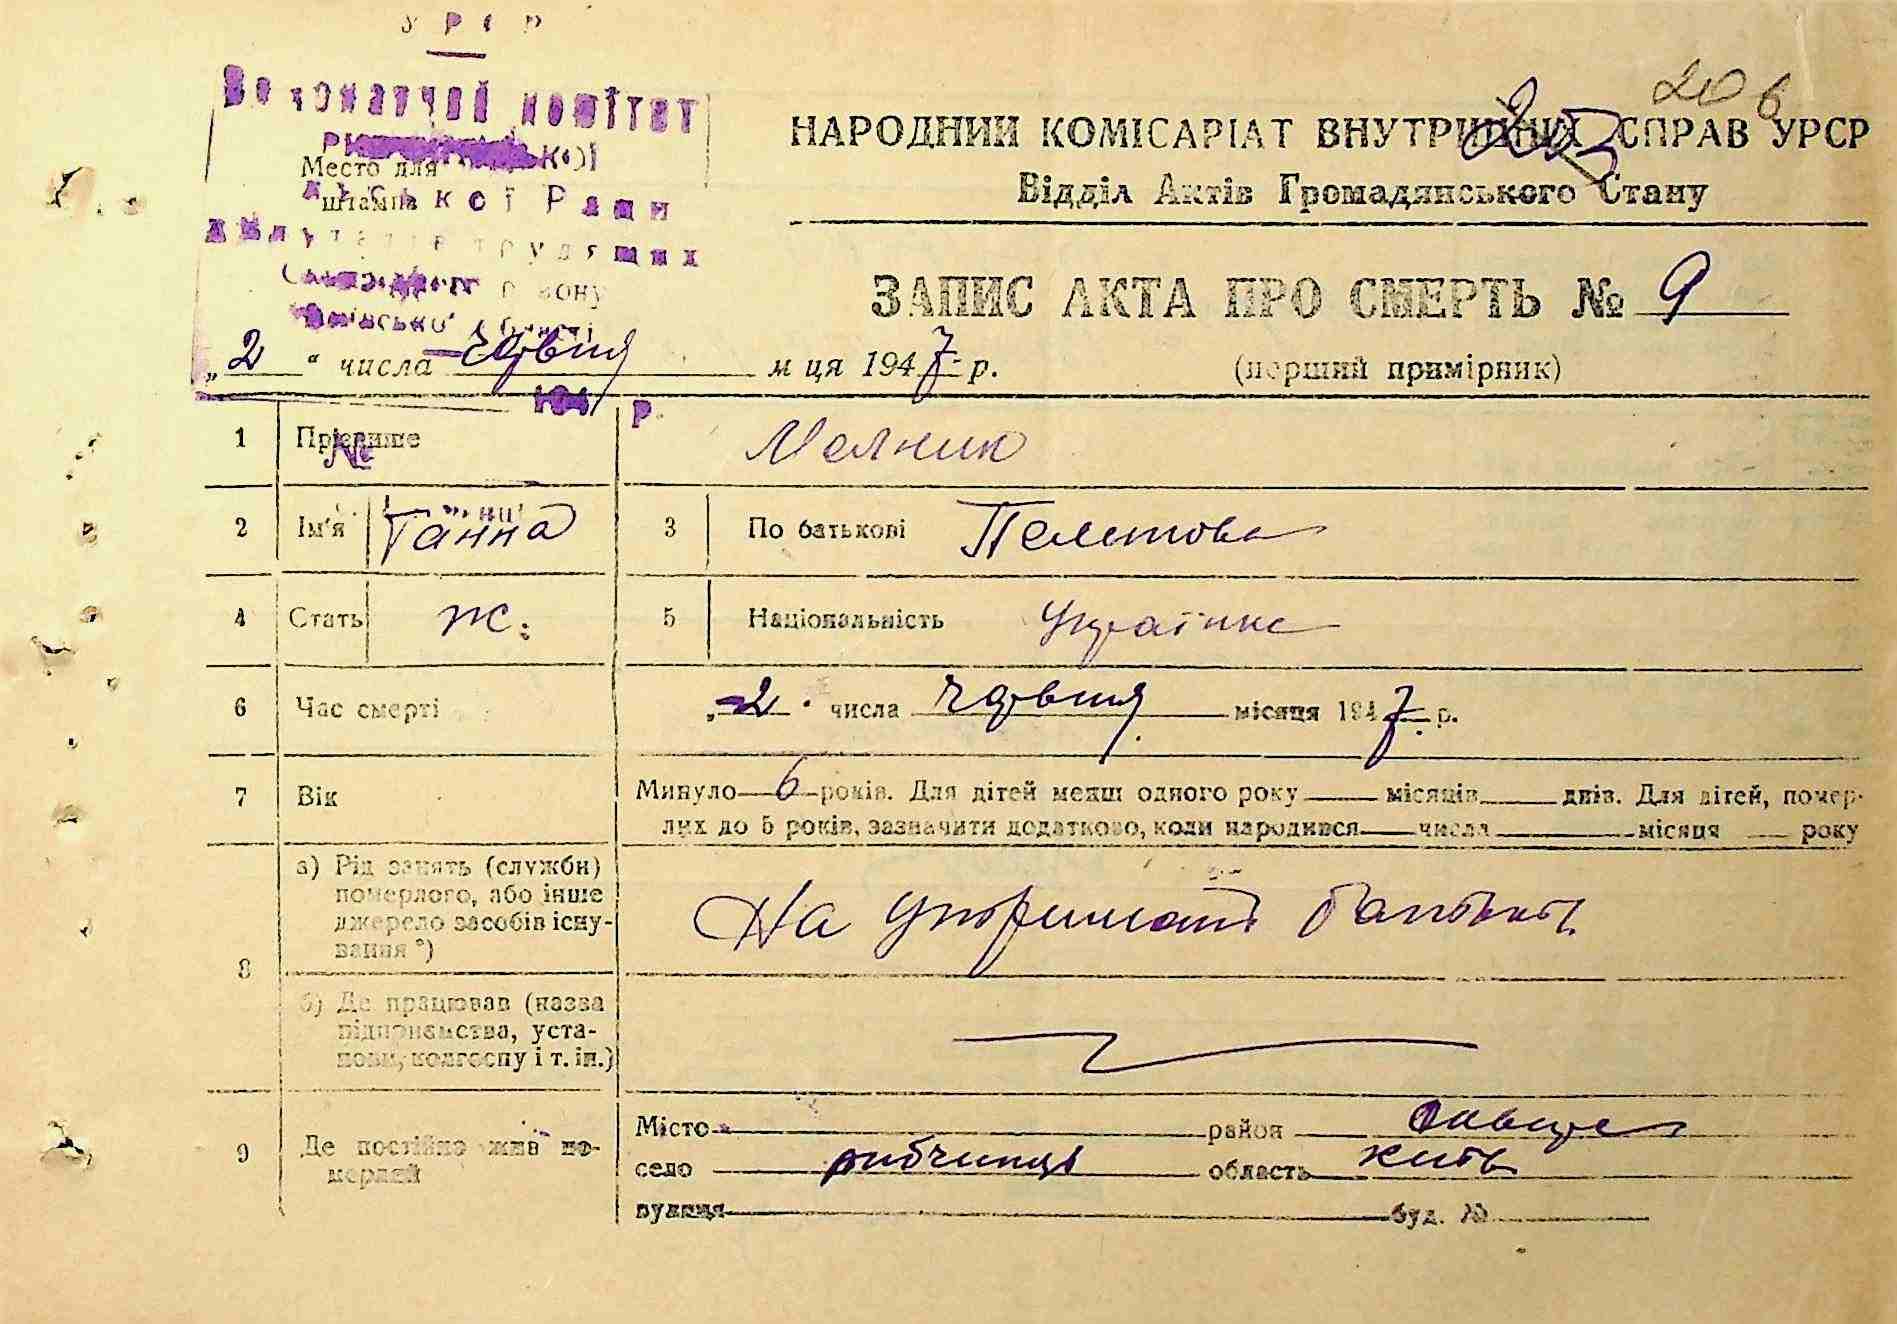 УРСР
Виконавчий комітет
Место для
штампа
сільської Ради
депутатів трудящих
району
Київської області
194 р.
№
206
НАРОДНИЙ КОМІСАРІАТ ВНУТРІШНІХ СПРАВ УРСР
Відділ Актів Громадянського Стану
ЗАПИС АКТА ПРО СМЕРТЬ № 9
„2“ числа червня м ця 1947 р.
(перший примірник)
1 Прізвище Мелник
2 Ім'я Ганна 3 По батькові
4 Стать ж. 5 Національність Українка
6 Час смерті „2" числа червня місяця 1947 р.
7 Вік Минуло 6 років. Для дітей менш одного року місяців днів. Для дітей, помер-
лих до 5 років, зазначити додатково, коли народився числа місяця року
8 а) Рід занять (служби)
померлого, або інше
джерело засобів існу-
вання *)
На утриманні батьків
б) Де працював (назва
підприємства, уста-
нови, колгоспу і т. ін.)
9 Де постійно жив по-
мерлий
Місто район
село рибчинці область Київ
вулиця буд. №